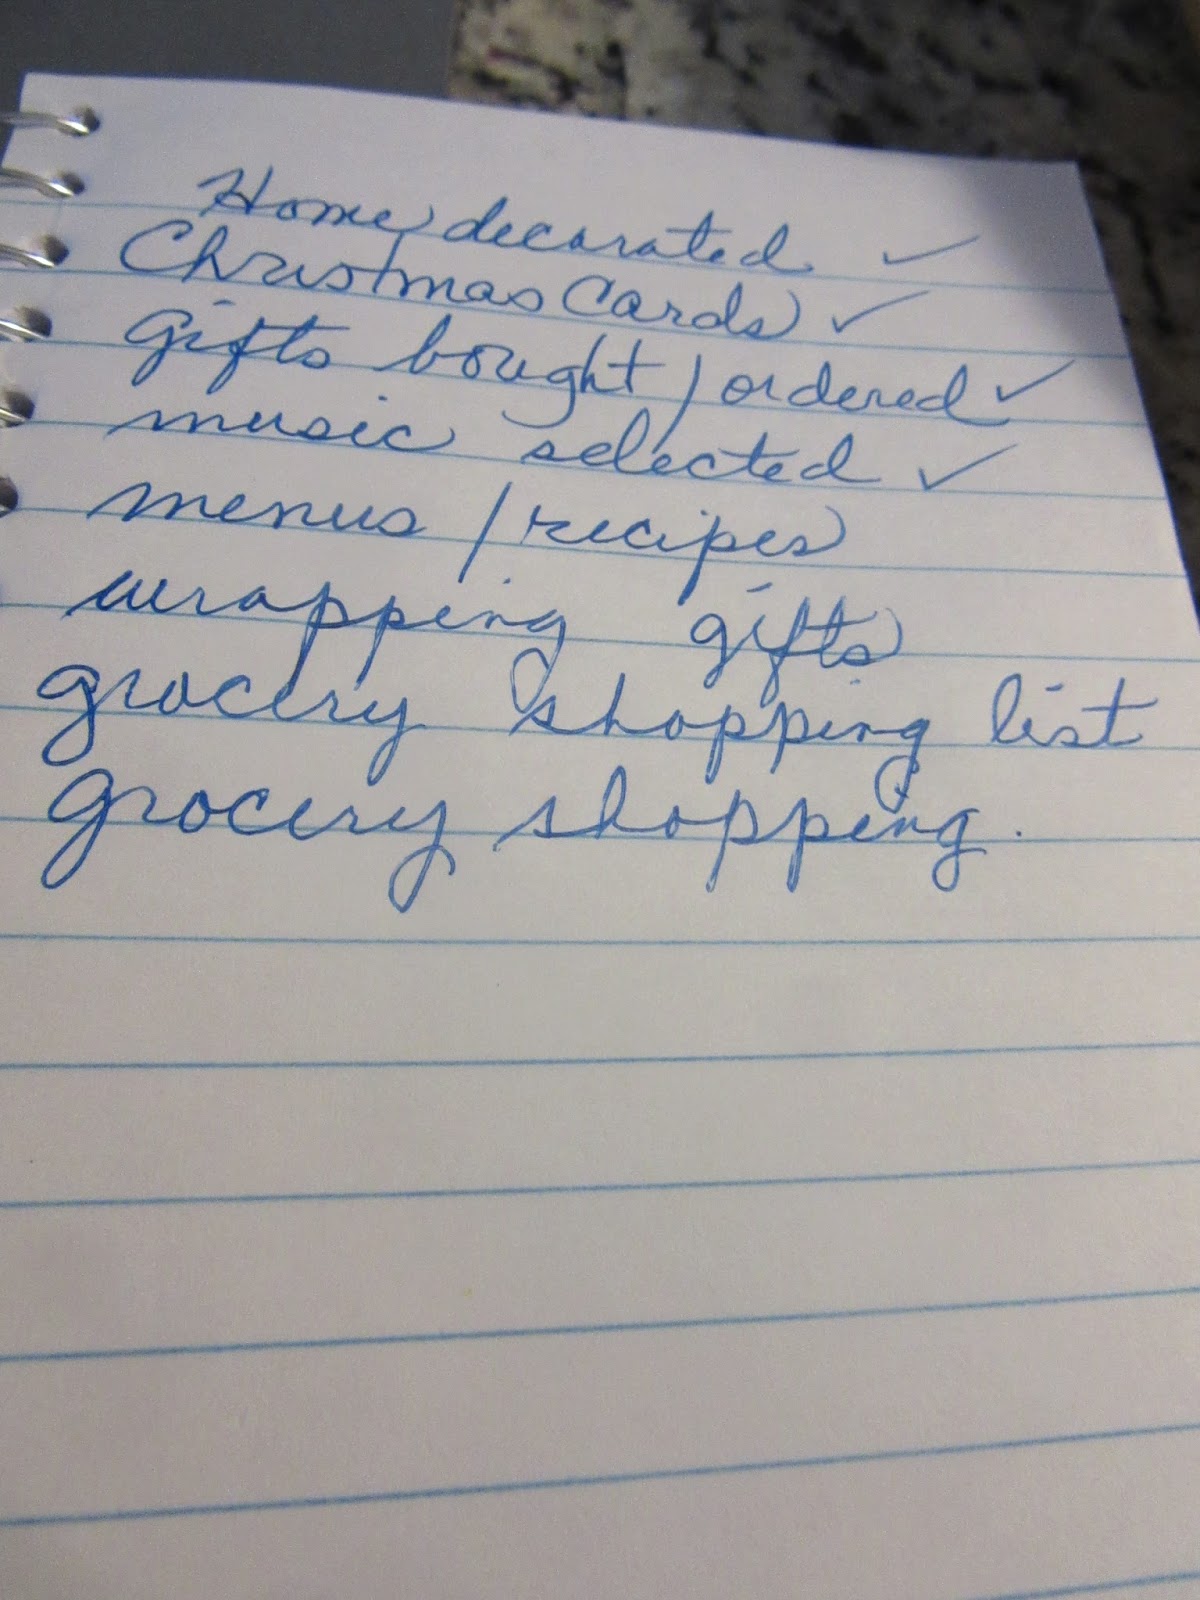 Home decorated ✓
Christmas Cards ✓
gifts bought / ordered ✓
music selected ✓
menus / recipes
wrapping gifts
grocery shopping list
grocery shopping.